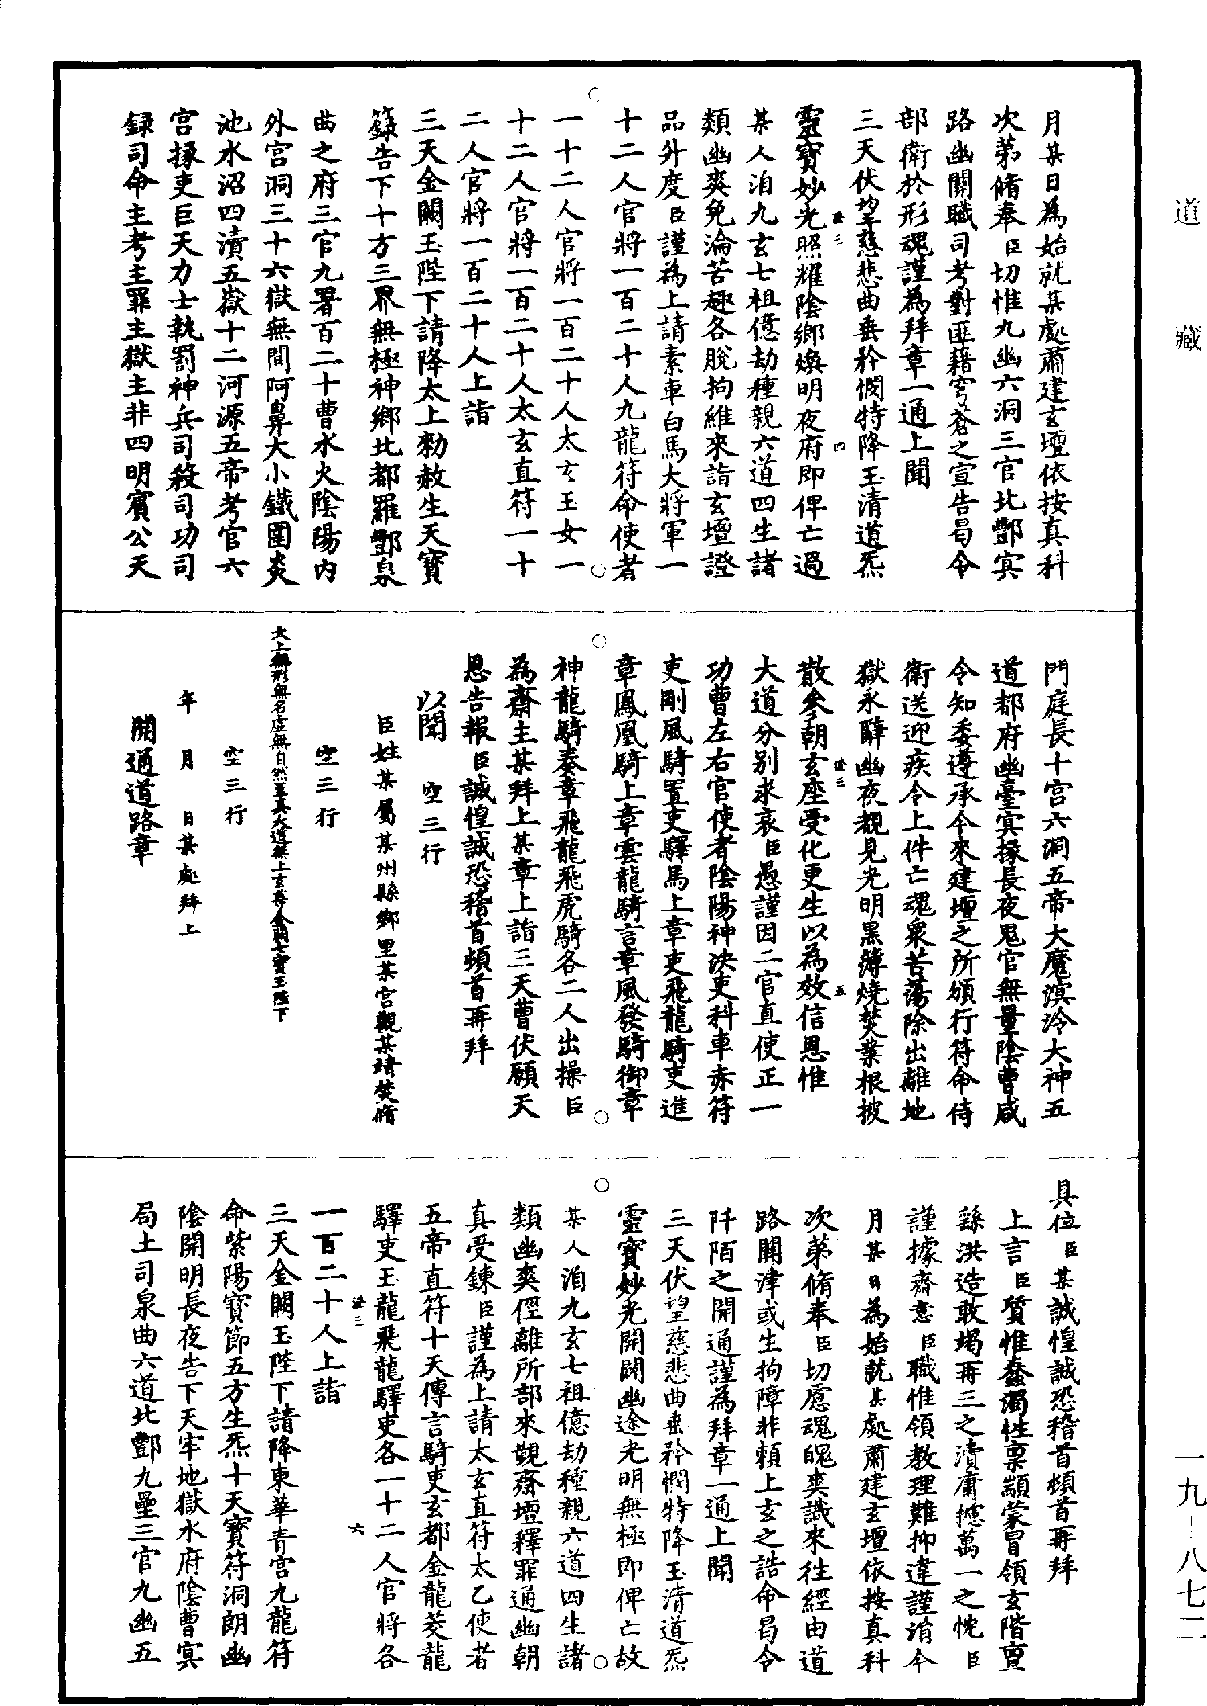 道藏
一九—八七二
月某日為始就某處肅建玄壇依按真科
次第脩奉臣切惟九幽六洞三官北酆冥
路幽關職司考對匪藉穹蒼之宣告曷令
部衛於形魂謹為拜章一通上聞
三天伏望慈悲曲垂矜憫特降玉清道炁
靈寶妙光照耀陰鄉煥明夜府即俾亡過
某人洎九玄七祖億劫種親六道四生諸
類幽爽免淪苦趣各脫拘維來詣玄壇證
品升度臣謹為上請素車白馬大將軍一
十二人官將一百二十人九龍符命使者
一十二人官將一百二十人太玄玉女一
十二人官將一百二十人太玄直符一十
二人官將一百二十人上詣
三天金闕玉陛下請降太上勑赦生天寶
籙告下十方三界無極神鄉北都羅酆泉
曲之府三官九署百二十曹水火陰陽內
外宮洞三十六獄無間阿鼻大小鐵圍炎
池水沼四瀆五嶽十二河源五帝考官六
宮掾吏巨天力士執罰神兵司殺司功司
錄司命主考主罪主獄主非四明賓公天
門庭長十宮六洞五帝大魔溟泠大神五
道都府幽臺冥掾長夜鬼官無量陰曹咸
令知委遵承今來建壇之所頒行符命侍
衛送迎疾令上件亡魂眾苦蕩除出離地
獄永辭幽夜覩見光明黑簿燒焚業根披
散參朝玄座受化更生以為效信恩惟
大道分別求哀臣愚謹因二官直使正一
功曹左右官使者陰陽神決吏科車赤符
吏剛風騎置吏驛馬上章吏飛龍騎吏進
章鳳凰騎上章雲龍騎言章風發騎御章
神龍騎奏章飛龍飛虎騎各二人出操臣
為齋主某拜上某章上詣三天曹伏願天
恩告報臣誠惶誠恐稽首頓首再拜
以聞　空三行
臣姓某屬某州縣鄉里某宮觀某靖焚脩
空三行
太上無名虛無自然至真大道無上玄尊金闕七寶玉陛下
空三行
年　月　日某處拜上
開通道路章
具位臣某誠惶誠恐稽首頓首再拜
上言臣質惟蠢濁性稟顓蒙冒領玄階亶
繇洪造敢竭再三之瀆庸攄萬一之忱臣
謹據齋意臣職惟領教理難抑違謹涓今
月某日為始就某處肅建玄壇依按真科
次第脩奉臣切慮魂魄爽識來往經由道
路關津或生拘障非頼上玄之誥命曷令
阡陌之開通謹為拜章一通上聞
三天伏望慈悲曲垂矜憫特降玉清道炁
靈寶妙光開闢幽途光明無極即俾亡故
某人洎九玄七祖億劫種親六道四生諸
類幽爽徑離所部來覲齋壇釋罪通幽朝
真受鍊臣謹為上請太玄直符太乙使者
五帝直符十天傳言騎吏玄都金龍茭龍
驛吏玉龍飛龍驛吏各一十二人官將各
一百二十人上詣
三天金闕玉陛下請降東華青宮九龍符
命紫陽寶節五方生炁十天寶符洞朗幽
陰開明長夜告下天牢地獄水府陰曹冥
局土司泉曲六道北酆九壘三官九幽五